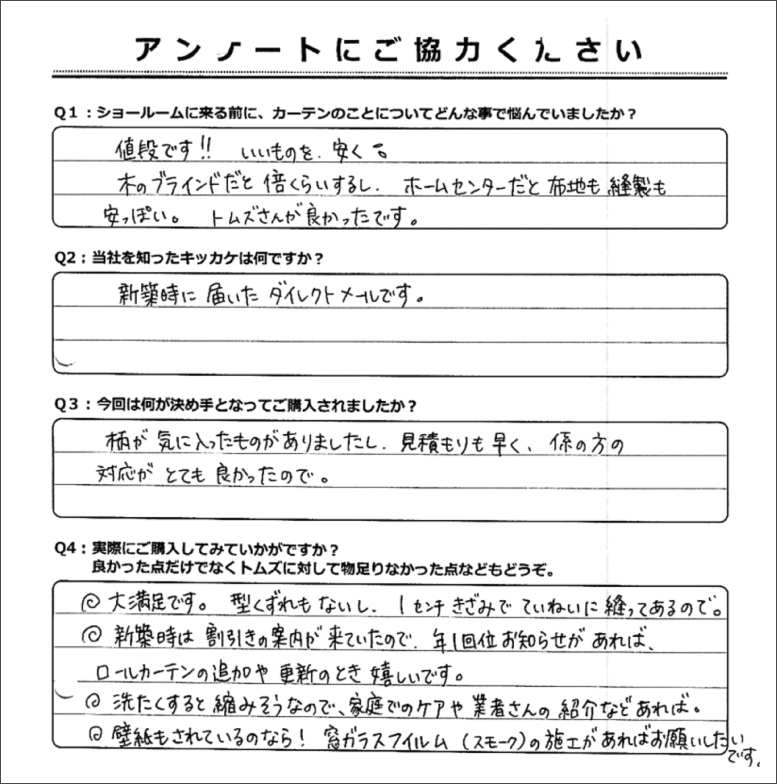 アンケートにご協力ください
Q1：ショールームに来る前に、カーテンのことについてどんな事で悩んでいましたか？
値段です!! いいものを、安く
木のブラインドだと倍くらいするし、ホームセンターだと布地も縫製も
安っぽい。トムズさんが良かったです。
Q2：当社を知ったキッカケは何ですか？
新築時に届いたダイレクトメールです。
Q3：今回は何が決め手となってご購入されましたか？
柄が気に入ったものがありましたし、見積もりも早く、係の方の
対応がとても良かったので。
Q4：実際にご購入してみていかがですか？
良かった点だけでなくトムズに対して物足りなかった点などもどうぞ。
◎大満足です。型くずれもないし、1センチきざみでていねいに縫ってあるので。
◎新築時は割引きの案内が来ていたので、年1回位お知らせがあれば、
ロールカーテンの追加や更新のとき嬉しいです。
◎洗たくすると縮みそうなので、家庭でのケアや業者さんの紹介などあれば。
◎壁紙もされているのなら！窓ガラスフイルム（スモーク）の施工があればお願いしたい
です。